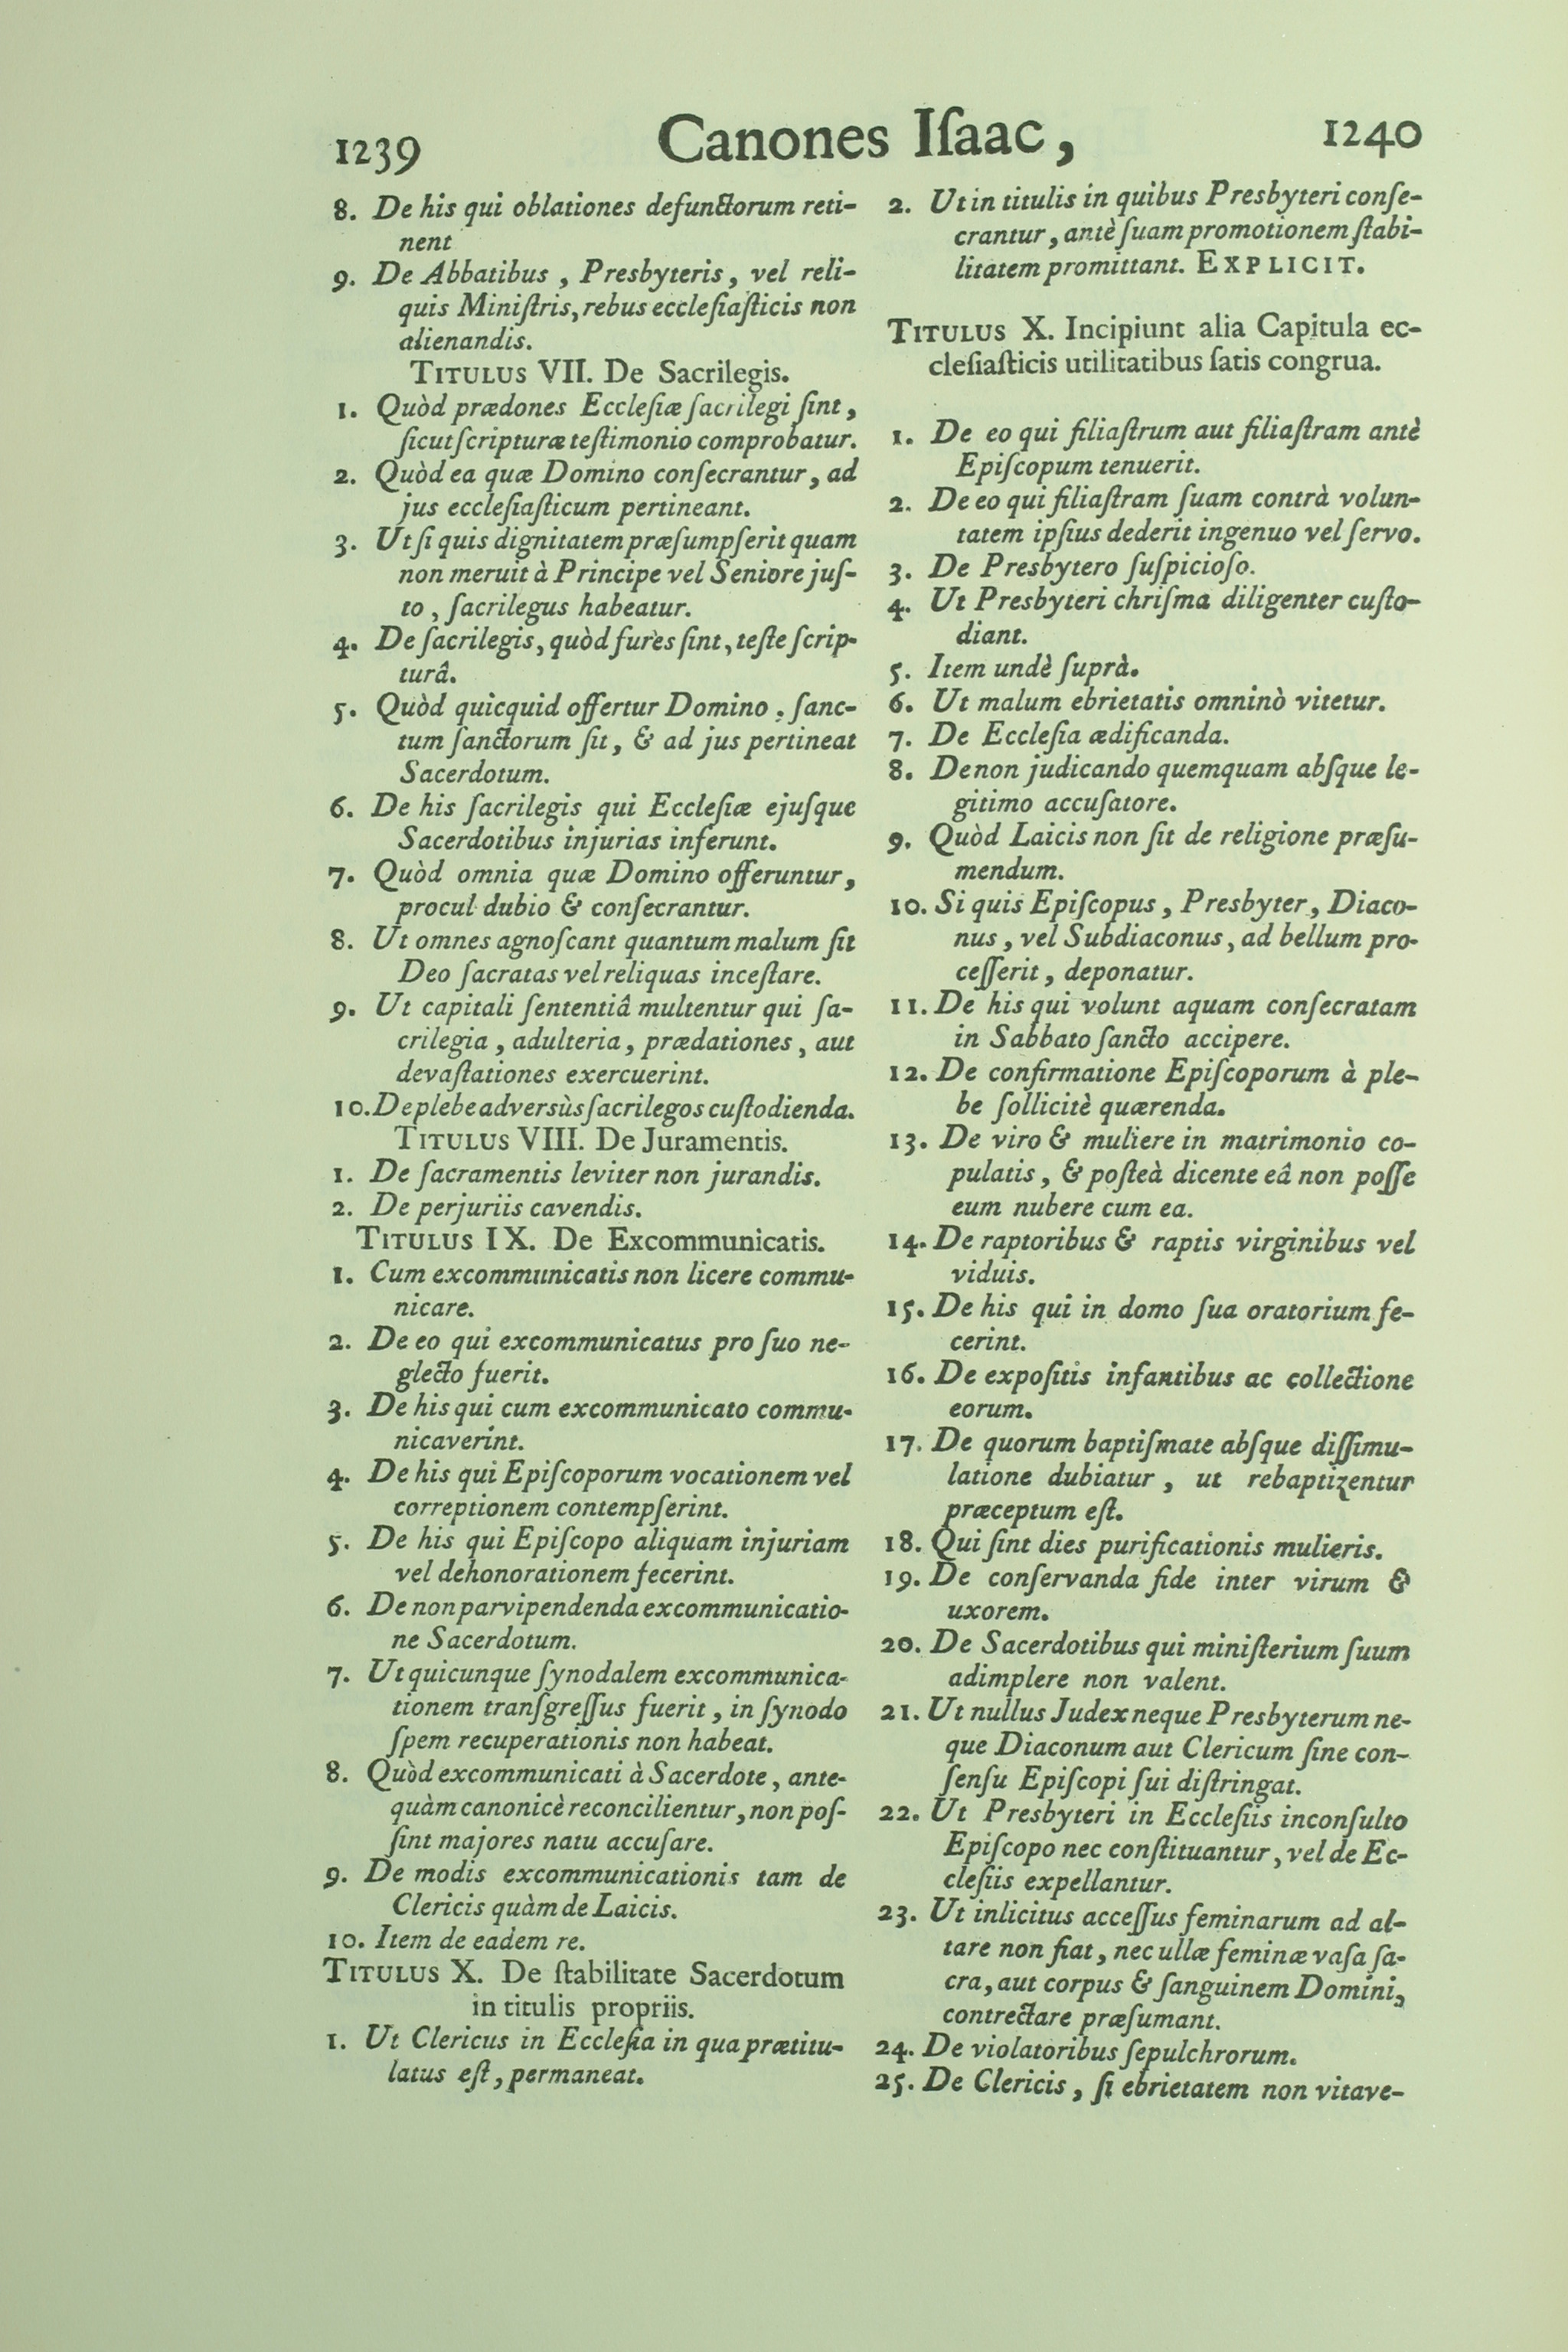 1239
Canones Iſaac,
1240
8. De his qui oblationes defunctorum reti-
nent
9. De Abbatibus, Presbyteris, vel reli-
quis Miniſtris, rebus eccleſiaſticis non
alienandis.
TITULUS VII. De Sacrilegis.
1. Quòd prædones Eccleſiæ ſacrilegi ſint,
ſicut ſcripturæ teſtimonio comprobatur.
2. Quòd ea quæ Domino conſecrantur, ad
jus eccleſiaſticum pertineant.
3. Ut ſi quis dignitatem præſumpſerit quam
non meruit à Principe vel Seniore juſ-
to, ſacrilegus habeatur.
4. De ſacrilegis, quòd fures ſint, teſte ſcrip-
turâ.
5. Quòd quicquid offertur Domino, ſanc-
tum ſanctorum ſit, & ad jus pertineat
Sacerdotum.
6. De his ſacrilegis qui Eccleſiæ ejuſque
Sacerdotibus injurias inferunt.
7. Quòd omnia quæ Domino offeruntur,
procul dubio & conſecrantur.
8. Ut omnes agnoſcant quantum malum ſit
Deo ſacratas vel reliquas inceſtare.
9. Ut capitali ſententiâ multentur qui ſa-
crilegia, adulteria, prædationes, aut
devaſtationes exercuerint.
10. De plebe adversùs ſacrilegos cuſtodienda.
TITULUS VIII. De Juramentis.
1. De ſacramentis leviter non jurandis.
2. De perjuriis cavendis.
TITULUS IX. De Excommunicatis.
1. Cum excommunicatis non licere commu-
nicare.
2. De eo qui excommunicatus pro ſuo ne-
glecto fuerit.
3. De his qui cum excommunicato commu-
nicaverint.
4. De his qui Epiſcoporum vocationem vel
correptionem contempſerint.
5. De his qui Epiſcopo aliquam injuriam
vel dehonorationem fecerint.
6. De non parvipendenda excommunicatio-
ne Sacerdotum.
7. Ut quicunque ſynodalem excommunica-
tionem tranſgreſſus fuerit, in ſynodo
ſpem recuperationis non habeat.
8. Quòd excommunicati à Sacerdote, ante-
quàm canonicè reconcilientur, non poſ-
ſint majores natu accuſare.
9. De modis excommunicationis tam de
Clericis quàm de Laicis.
10. Item de eadem re.
TITULUS X. De ſtabilitate Sacerdotum
in titulis propriis.
1. Ut Clericus in Eccleſia in qua prætitu-
latus eſt, permaneat.
2. Ut in titulis in quibus Presbyteri conſe-
crantur, antè ſuam promotionem ſtabi-
litatem promittant. EXPLICIT.
TITULUS X. Incipiunt alia Capitula ec-
cleſiaſticis utilitatibus ſatis congrua.
1. De eo qui filiaſtrum aut filiaſtram antè
Epiſcopum tenuerit.
2. De eo qui filiaſtram ſuam contrà volun-
tatem ipſius dederit ingenuo vel ſervo.
3. De Presbytero ſuſpicioſo.
4. Ut Presbyteri chriſma diligenter cuſto-
diant.
5. Item undè ſuprà.
6. Ut malum ebrietatis omninò vitetur.
7. De Eccleſia ædificanda.
8. De non judicando quemquam abſque le-
gitimo accuſatore.
9. Quòd Laicis non ſit de religione præſu-
mendum.
10. Si quis Epiſcopus, Presbyter, Diaco-
nus, vel Subdiaconus, ad bellum pro-
ceſſerit, deponatur.
11. De his qui volunt aquam conſecratam
in Sabbato ſancto accipere.
12. De confirmatione Epiſcoporum à ple-
be ſollicitè quærenda.
13. De viro & muliere in matrimonio co-
pulatis, & poſteà dicente eâ non poſſe
eum nubere cum ea.
14. De raptoribus & raptis virginibus vel
viduis.
15. De his qui in domo ſua oratorium fe-
cerint.
16. De expoſitis infantibus ac collectione
eorum.
17. De quorum baptiſmate abſque diſſimu-
latione dubiatur, ut rebaptizentur
præceptum eſt.
18. Qui ſint dies purificationis mulieris.
19. De conſervanda fide inter virum &
uxorem.
20. De Sacerdotibus qui miniſterium ſuum
adimplere non valent.
21. Ut nullus Judex neque Presbyterum ne-
que Diaconum aut Clericum ſine con-
ſenſu Epiſcopi ſui diſtringat.
22. Ut Presbyteri in Eccleſiis inconſulto
Epiſcopo nec conſtituantur, vel de Ec-
cleſiis expellantur.
23. Ut inlicitus acceſſus feminarum ad al-
tare non fiat, nec ullæ feminæ vaſa ſa-
cra, aut corpus & ſanguinem Domini,
contrectare præſumant.
24. De violatoribus ſepulchrorum.
25. De Clericis, ſi ebrietatem non vitave-